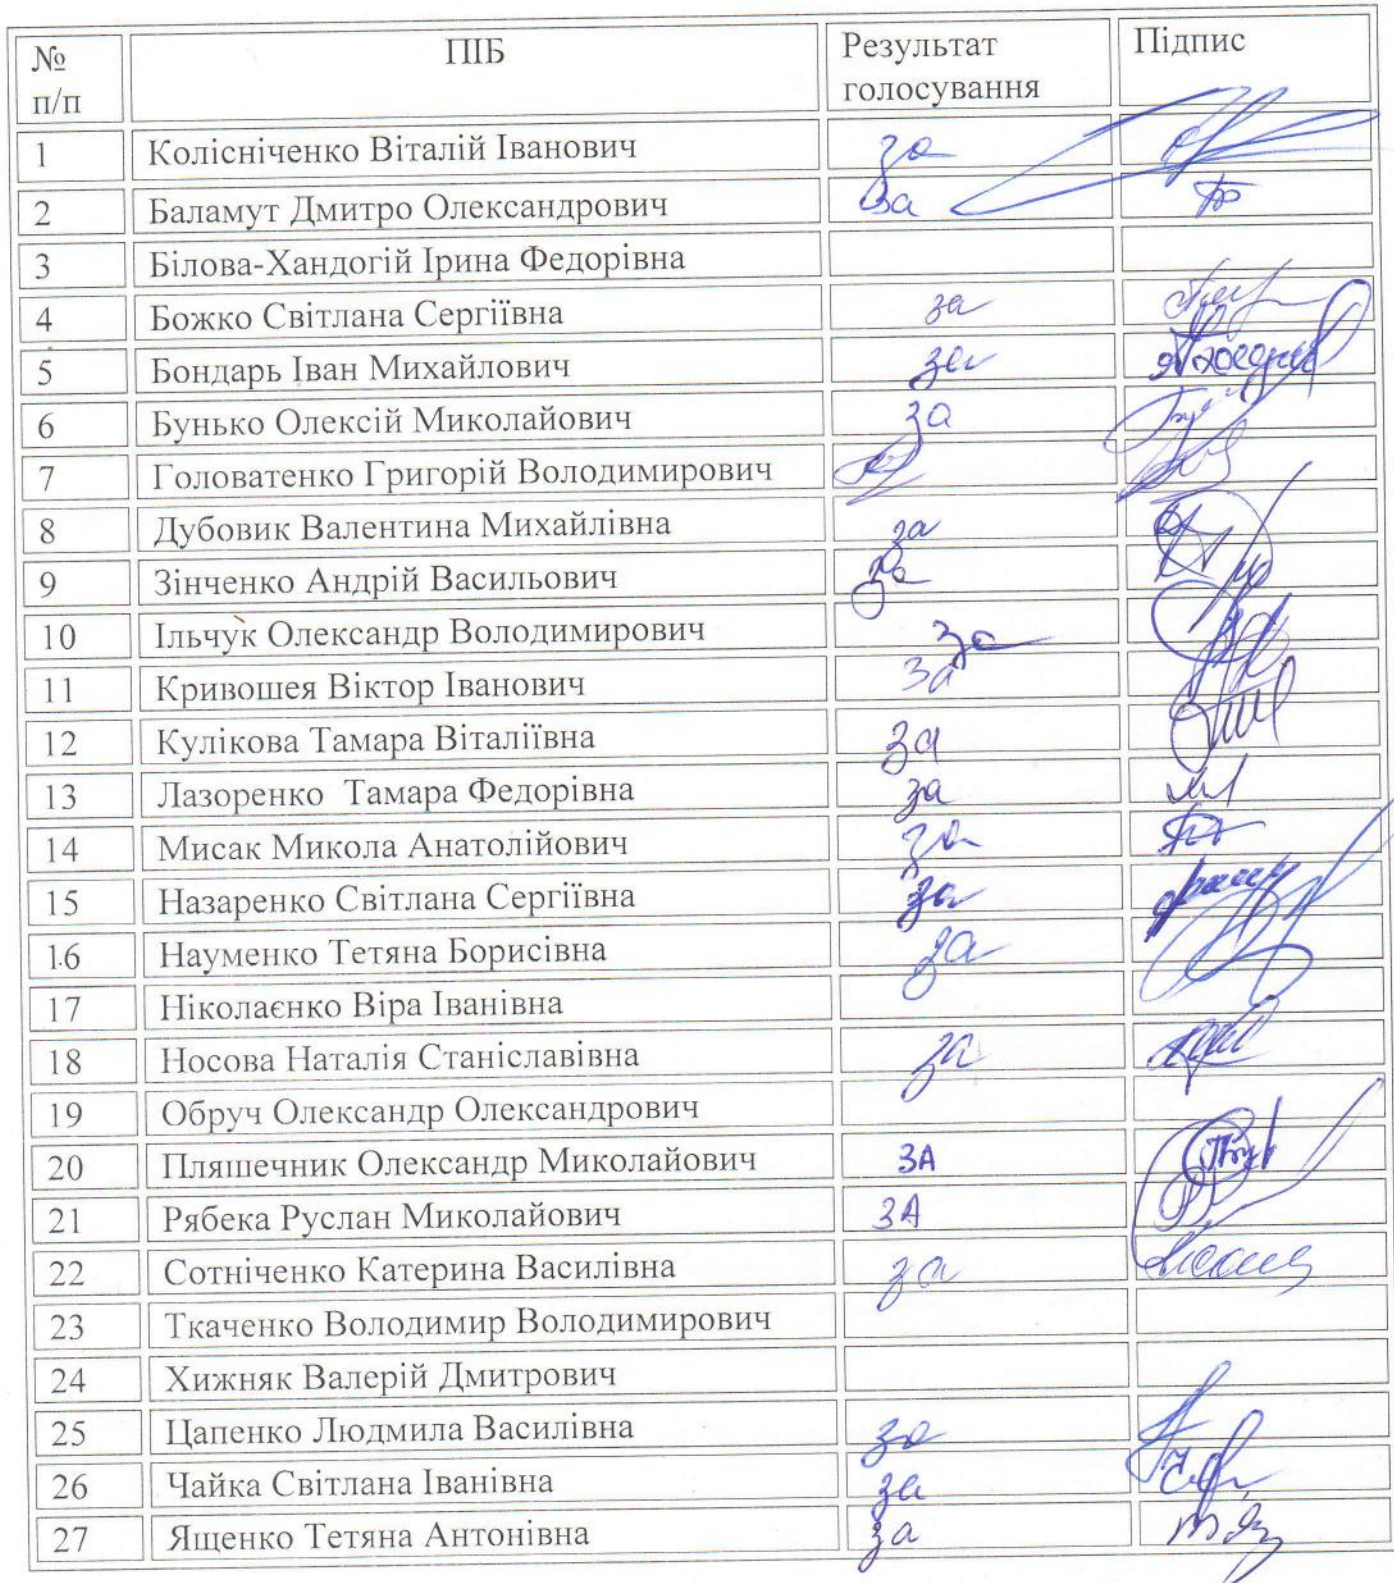 № п/п ПІБ Результат голосування Підпис
1 Колісніченко Віталій Іванович за
2 Баламут Дмитро Олександрович за
3 Білова-Хандогій Ірина Федорівна
4 Божко Світлана Сергіївна за
5 Бондарь Іван Михайлович за
6 Бунько Олексій Миколайович за
7 Головатенко Григорій Володимирович
8 Дубовик Валентина Михайлівна за
9 Зінченко Андрій Васильович за
10 Ільчук Олександр Володимирович за
11 Кривошея Віктор Іванович за
12 Кулікова Тамара Віталіївна за
13 Лазоренко Тамара Федорівна за
14 Мисак Микола Анатолійович за
15 Назаренко Світлана Сергіївна за
16 Науменко Тетяна Борисівна за
17 Ніколаєнко Віра Іванівна
18 Носова Наталія Станіславівна за
19 Обруч Олександр Олександрович
20 Пляшечник Олександр Миколайович ЗА
21 Рябека Руслан Миколайович ЗА
22 Сотніченко Катерина Василівна за
23 Ткаченко Володимир Володимирович
24 Хижняк Валерій Дмитрович
25 Цапенко Людмила Василівна за
26 Чайка Світлана Іванівна за
27 Ященко Тетяна Антонівна за